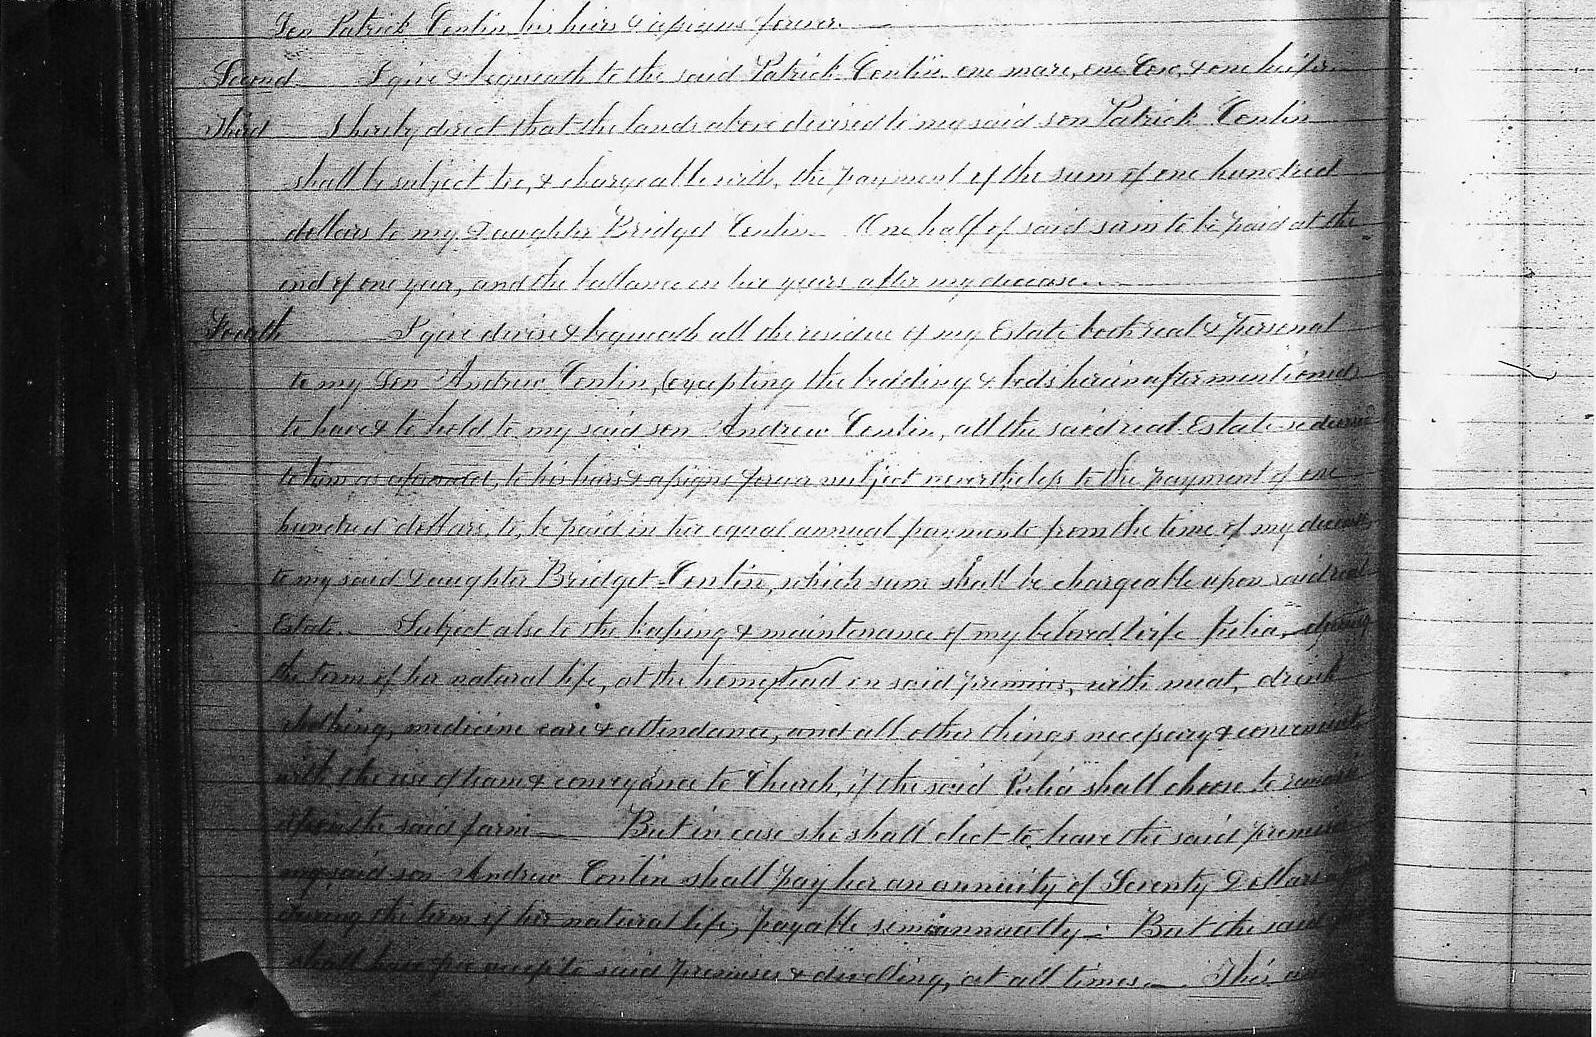 Son Patrick Conlin his heirs & assigns forever.
Second I give & bequeath to the said Patrick Conlin one mare, one Cow, & one heifer
Third I hereby direct that the lands above devised to my said son Patrick Conlin
shall be subject to, & chargeable with, the payment of the sum of one hundred
dollars to my Daughter Bridget Conlin. One half of said sum to be paid at the
end of one year, and the ballance in two years after my decease.
Fourth I give devise & bequeath all the residue of my Estate both real & personal
to my Son Andrew Conlin, (excepting the bedding & beds hereinafter mentioned
to have & to hold to my said son Andrew Conlin, all the said real Estate so devised
to him as aforesaid, to his heirs & assigns forever subject nevertheless to the payment of one
hundred dollars, to be paid in two equal annual payments from the time of my decease,
to my said Daughter Bridget Conlin, which sum shall be chargeable upon said real
Estate. Subject also to the keeping & maintenance of my beloved wife Julia, during
the term of her natural life, at the homestead on said premises, with meat, drink
clothing, medicine care & attendance, and all other things necessary & convenient
with the use of team & conveyance to Church, if the said Julia shall choose to remain
upon the said farm But in case she shall elect to leave the said premises
my said son Andrew Conlin shall pay her an annuity of Seventy Dollars
during the term of her natural life, payable semiannually. But the said
shall have free access to said premises & dwelling, at all times. This